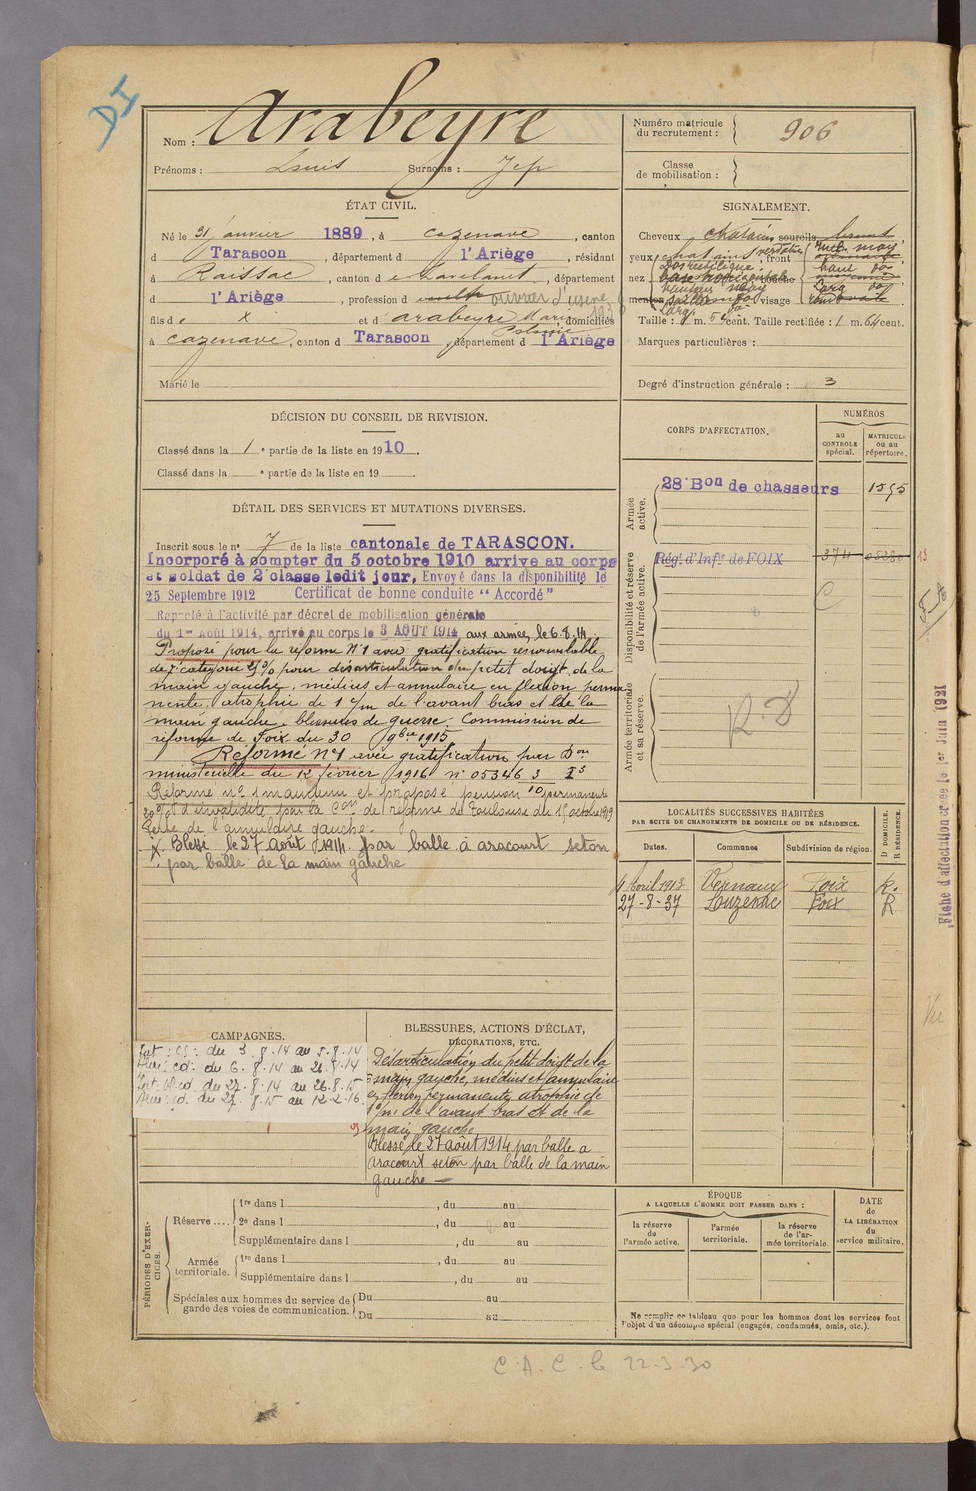 DI
Nom : Arabeyre
Prénoms : Louis Surnoms : Jph
Numéro matricule du recrutement : 906
Classe de mobilisation :
ÉTAT CIVIL.
Né le 31 janvier 1889, à Cazenave, canton
d Tarascon, département d l'Ariège, résidant
à Raissac, canton d e Lavelanet, département
d l'Ariège, profession d cult ouvrier d'usine
fils d e x et d' arabeyre Marie domiciliés
à Cazenave, canton d Tarascon, département d l'Ariège
Marié le
SIGNALEMENT.
Cheveux chatains sourcils bruns
yeux chatains verdatre, front incl. moy.
haut do
larg do
nez dos rectiligne bouche
hauteur moy
menton visage rond
Taille : 1 m. 54 cent. Taille rectifiée : 1 m. 64 cent.
Marques particulières :
Degré d'instruction générale : 3
DÉCISION DU CONSEIL DE REVISION.
Classé dans la 1 e partie de la liste en 1910.
Classé dans la e partie de la liste en 19
CORPS D'AFFECTATION.
NUMÉROS
au CONTROLE spécial.
MATRICULE ou au répertoire.
Armée active.
28e Bon de chasseurs 1595
Disponibilité et réserve de l'armée active.
Régt d'Infie de FOIX 374
Armée territoriale et sa réserve.
R.D
DÉTAIL DES SERVICES ET MUTATIONS DIVERSES.
Inscrit sous le n° 7 de la liste cantonale de TARASCON.
Incorporé à compter du 5 octobre 1910 arrive au corps
et soldat de 2e classe ledit jour, Envoyé dans la disponibilité le
25 Septembre 1912 Certificat de bonne conduite "Accordé"
Rappelé à l'activité par décret de mobilisation générale
du 1er Août 1914, arrivé au corps le 3 AOUT 1914 aux armées, le 6.8.14.
Proposé pour la réforme N°1 avec gratification renouvelable
de 7e catégorie % pour désarticulation du petit doigt de la
main gauche, médius et annulaire en flexion perma
nente, atrophie de 1 c/m de l'avant bras et de la
main gauche. blessures de guerre. Commission de
réforme de Foix du 30 9bre 1915
Réformé n°1 avec gratification par Don
ministérielle du 12 février 1916 n° 05346 3 I3
Réforme n° 1 maintenu et proposé pension permanente
20 % d'invalidité par la Con de réforme de Toulouse du 15 octobre 1919
Perte de l'annulaire gauche.
X. Blessé le 27 Août 1914. par balle à aracourt seton
par balle de la main gauche
LOCALITÉS SUCCESSIVES HABITÉES
PAR SUITE DE CHANGEMENTS DE DOMICILE OU DE RÉSIDENCE.
Dates. Communes Subdivision de région. D DOMICILE. R RÉSIDENCE.
Avril 1913 Vernaux Foix R.
27-8-37 Luzenac Foix R
Fiche d'affectation créée le 1er Juin 1921
Vu
CAMPAGNES.
Int : CS : du 3.8.14 au 5.8.14
Aux : cd. du 6.8.14 au 26.8.14
Int bl. cd. du 27.8.14 au 26.8.15
Aux : cd. du 27.8.15 au 12.2.16
BLESSURES, ACTIONS D'ÉCLAT,
DÉCORATIONS, ETC.
Désarticulation du petit doigt de la
main gauche, médius et annulaire
en flexion permanente, atrophie de
1 c/m de l'avant bras et de la
main gauche
Blessé le 27 août 1914 par balle a
aracourt seton par balle de la main
gauche —
PÉRIODES D'EXERCICES.
Réserve....
1re dans l , du au
2e dans l , du au
Supplémentaire dans l , du au
Armée territoriale.
1re dans l , du au
Supplémentaire dans l , du au
Spéciales aux hommes du service de garde des voies de communication.
Du au
Du au
ÉPOQUE
A LAQUELLE L'HOMME DOIT PASSER DANS :
la réserve de l'armée active.
l'armée territoriale.
la réserve de l'armée territoriale
DATE de LA LIBÉRATION du service militaire.
Ne remplir ce tableau que pour les hommes dont les services font
l'objet d'un décompte spécial (engagés, condamnés, omis, etc.).
C.A.C. le 22.3.30